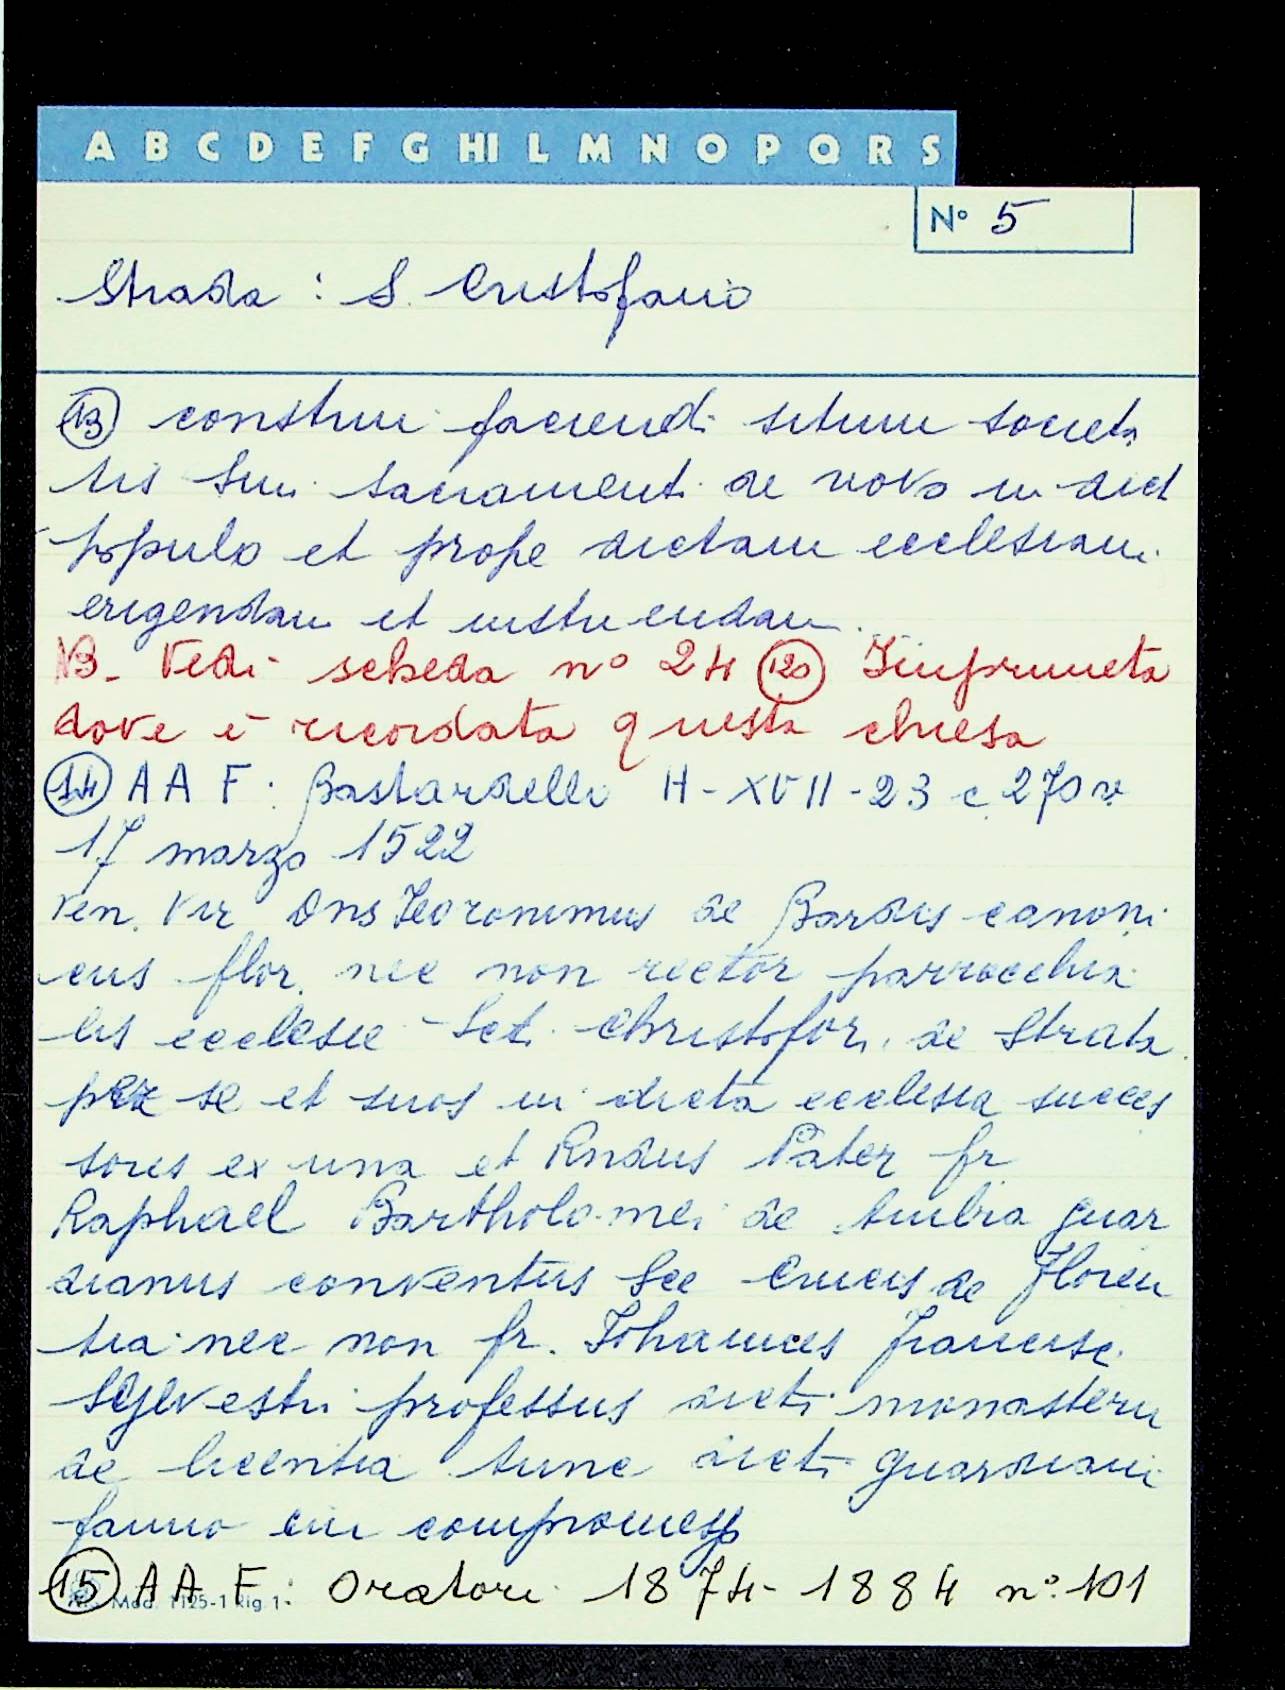 A B C D E F G HI L M N O P Q R S
N° 5
Strada : S. Cristofano
(13) construi faciendi situm societa
tis Smi sacramenti de novo in dict
populo et prope dictam ecclesiam
erigendam et instruendam.
NB. Vedi scheda n° 24 (120) Impruneta
dove è ricordata questa chiesa
(14) A A F : Bastardello H - XVII - 23 c. 270 v
17 marzo 1522
Ven. Vir Dns Ieoronimus de Bardis canoni
cus flor. nec non rector parrocchia
lis ecclesie Scti Christofori de Strata
per se et suos in dicta ecclesia succes
sores ex una et Rndus Pater fr
Raphael Bartholomei de Ambra guar
dianus conventus Sce Crucis de Floren
tia nec non fr. Iohannes Francisc.
Sylvestri professus dicti monasterii
de licentia tunc dicti guardiani
fanno un compromesso
(15) A A F : Oratori 1874 - 1884 n°. 101
Mod. 1125-1 Rig. 1